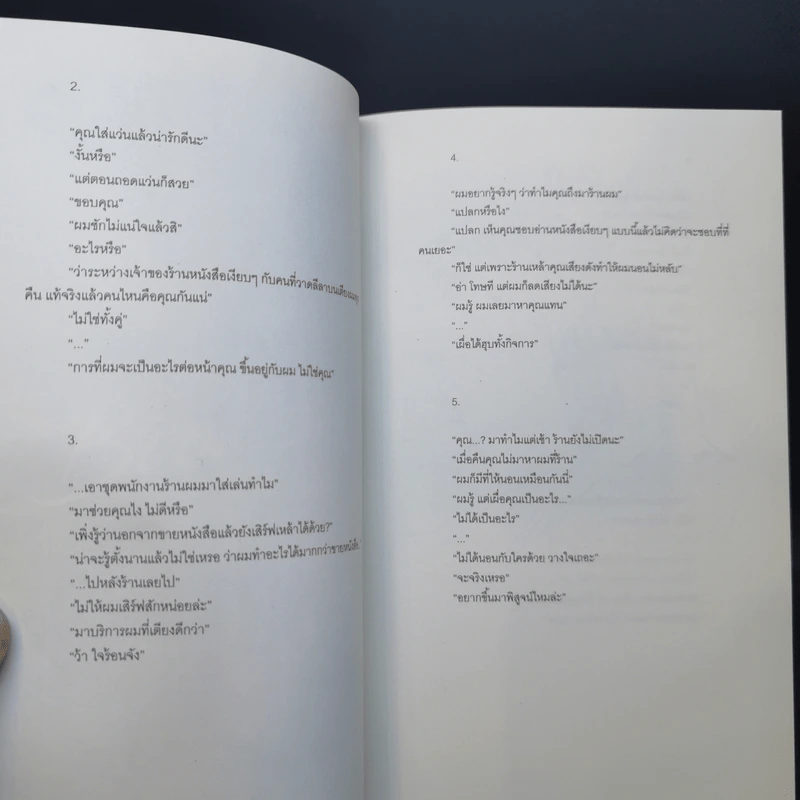 2.
“คุณใส่แว่นแล้วน่ารักดีนะ”
“งั้นหรือ”
“แต่ตอนถอดแว่นก็สวย”
“ขอบคุณ”
“ผมชักไม่แน่ใจแล้วสิ”
“อะไรหรือ”
“ว่าระหว่างเจ้าของร้านหนังสือเงียบๆ กับคนที่วาดลีลาบนเตียง
คืน แท้จริงแล้วคนไหนคือคุณกันแน่”
“ไม่ใช่ทั้งคู่”
“...”
“การที่ผมจะเป็นอะไรต่อหน้าคุณ ขึ้นอยู่กับผม ไม่ใช่คุณ”
3.
“...เอาชุดพนักงานร้านผมมาใส่เล่นทำไม”
“มาช่วยคุณไง ไม่ดีหรือ”
“เพิ่งรู้ว่านอกจากขายหนังสือแล้วยังเสิร์ฟเหล้าได้ด้วย?”
“น่าจะรู้ตั้งนานแล้วไม่ใช่เหรอ ว่าผมทำอะไรได้มากกว่าขายหนังสือ
“...ไปหลังร้านเลยไป”
“ไม่ให้ผมเสิร์ฟสักหน่อยล่ะ”
“มาบริการผมที่เตียงดีกว่า”
“ว้า ใจร้อนจัง”
4.
“ผมอยากรู้จริงๆ ว่าทำไมคุณถึงมาร้านผม”
“แปลกหรือไง”
“แปลก เห็นคุณชอบอ่านหนังสือเงียบๆ แบบนี้แล้วไม่คิดว่าจะชอบที่ที่
คนเยอะ”
“ก็ใช่ แต่เพราะร้านเหล้าคุณเสียงดังทำให้ผมนอนไม่หลับ”
“อ่า โทษที แต่ผมก็ลดเสียงไม่ได้นะ”
“ผมรู้ ผมเลยมาหาคุณแทน”
“...”
“เผื่อได้ฮุบทั้งกิจการ”
5.
“คุณ...? มาทำไมแต่เช้า ร้านยังไม่เปิดนะ”
“เมื่อคืนคุณไม่มาหาผมที่ร้าน”
“ผมก็มีที่ให้นอนเหมือนกันนี่”
“ผมรู้ แต่เผื่อคุณเป็นอะไร...”
“ไม่ได้เป็นอะไร”
“...”
“ไม่ได้นอนกับใครด้วย วางใจเถอะ”
“จะจริงเหรอ”
“อยากขึ้นมาพิสูจน์ไหมล่ะ”